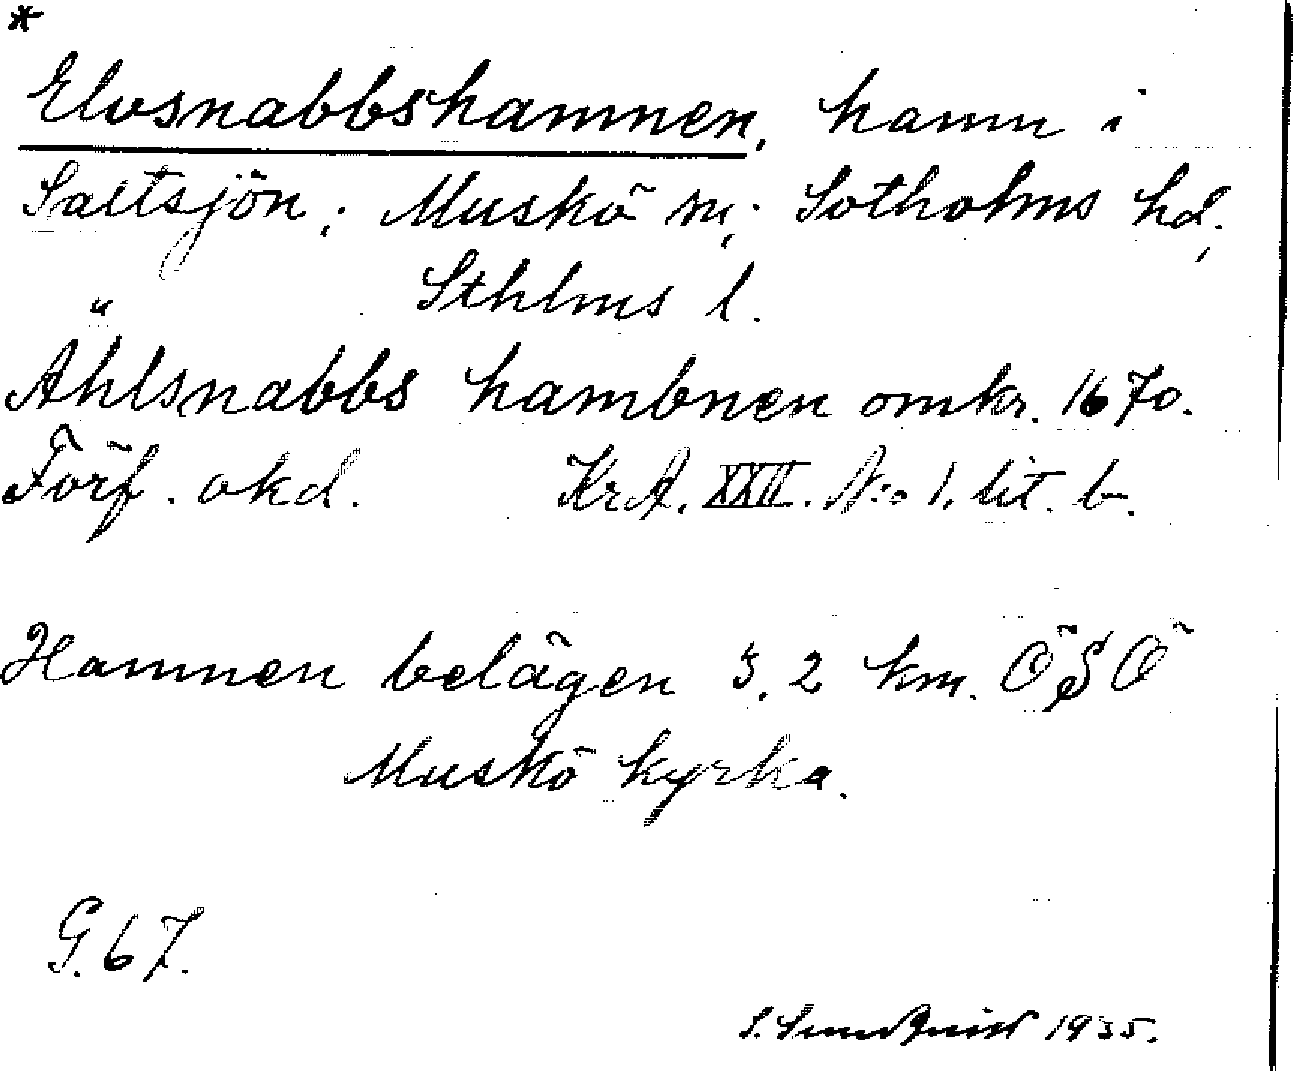 *
Elvsnabbshamnen, hamn i
Saltsjön; Muskö sn; Sotholms hd,
Sthlms l.
Ählsnabbs hambnen omkr. 1670.
Förf. okd. Kr.A. XXII. N:o 1. lit. b.
Hamnen belägen 3,2 km. ÖSÖ
Muskö kyrka.
G. 67.
S. Sundquist 1935.